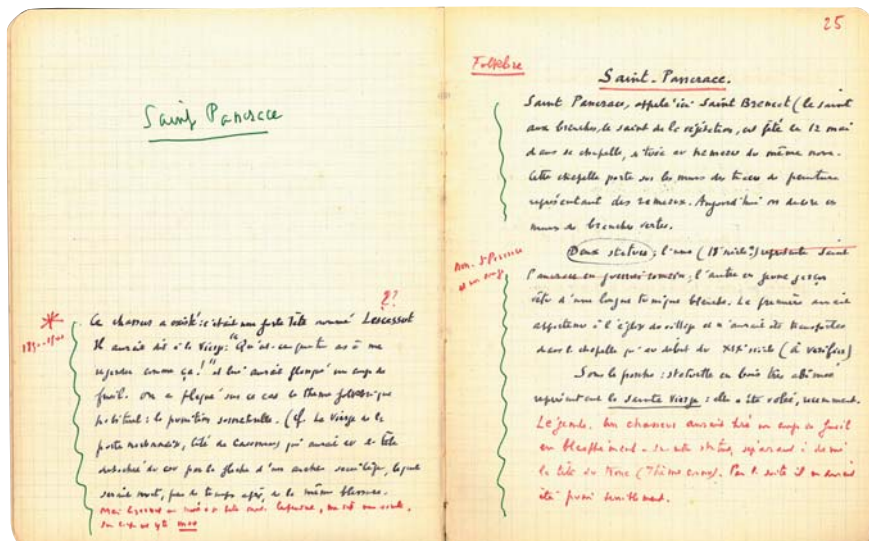 Saint Pancrace
??
Ce chasseur a existé : c'était une forte tête nommé Lescassut
1890-1900
Il aurait dit à la Vierge : "Qu'est-ce que tu as à me
regarder comme ça !" et lui aurait flanqué un coup de
fusil. On a plaqué sur ce cas le thème folklorique
habituel : la punition surnaturelle. (cf. La Vierge de la
porte narbonnaise, Cité de Carcassonne, qui aurait eu la tête
détachée du cou par la flèche d'un archer sacrilège, lequel
serait mort, peu de temps après, de la même blessure.
25
Folklore
Saint-Pancrace.
Saint Pancrace, appelé ici Saint Brancat (le saint
aux branches, le saint de la végétation, est fêté le 12 mai
dans sa chapelle, située au hameau du même nom.
Cette chapelle porte sur les murs des traces de peinture
représentant des rameaux. Aujourd'hui on décore ces
murs de branches vertes.
Deux statues ; l'une (18e siècle) représente Saint
non. St Pancrace
Pancrace en guerrier romain ; l'autre en jeune garçon
vêtu d'une longue tunique blanche. La première aurait
appartenu à l'église du village et n'aurait été transportée
dans la chapelle qu'au début du XIXe siècle (à vérifier)
Sous le porche : statuette en bois très abîmée
représentant la Sainte Vierge : elle a été volée, récemment.
Légende. Un chasseur aurait tiré un coup de fusil
en blasphémant sur cette statue, séparant à demi
la tête du tronc (Thème connu). Par la suite il en aurait
été puni terriblement.